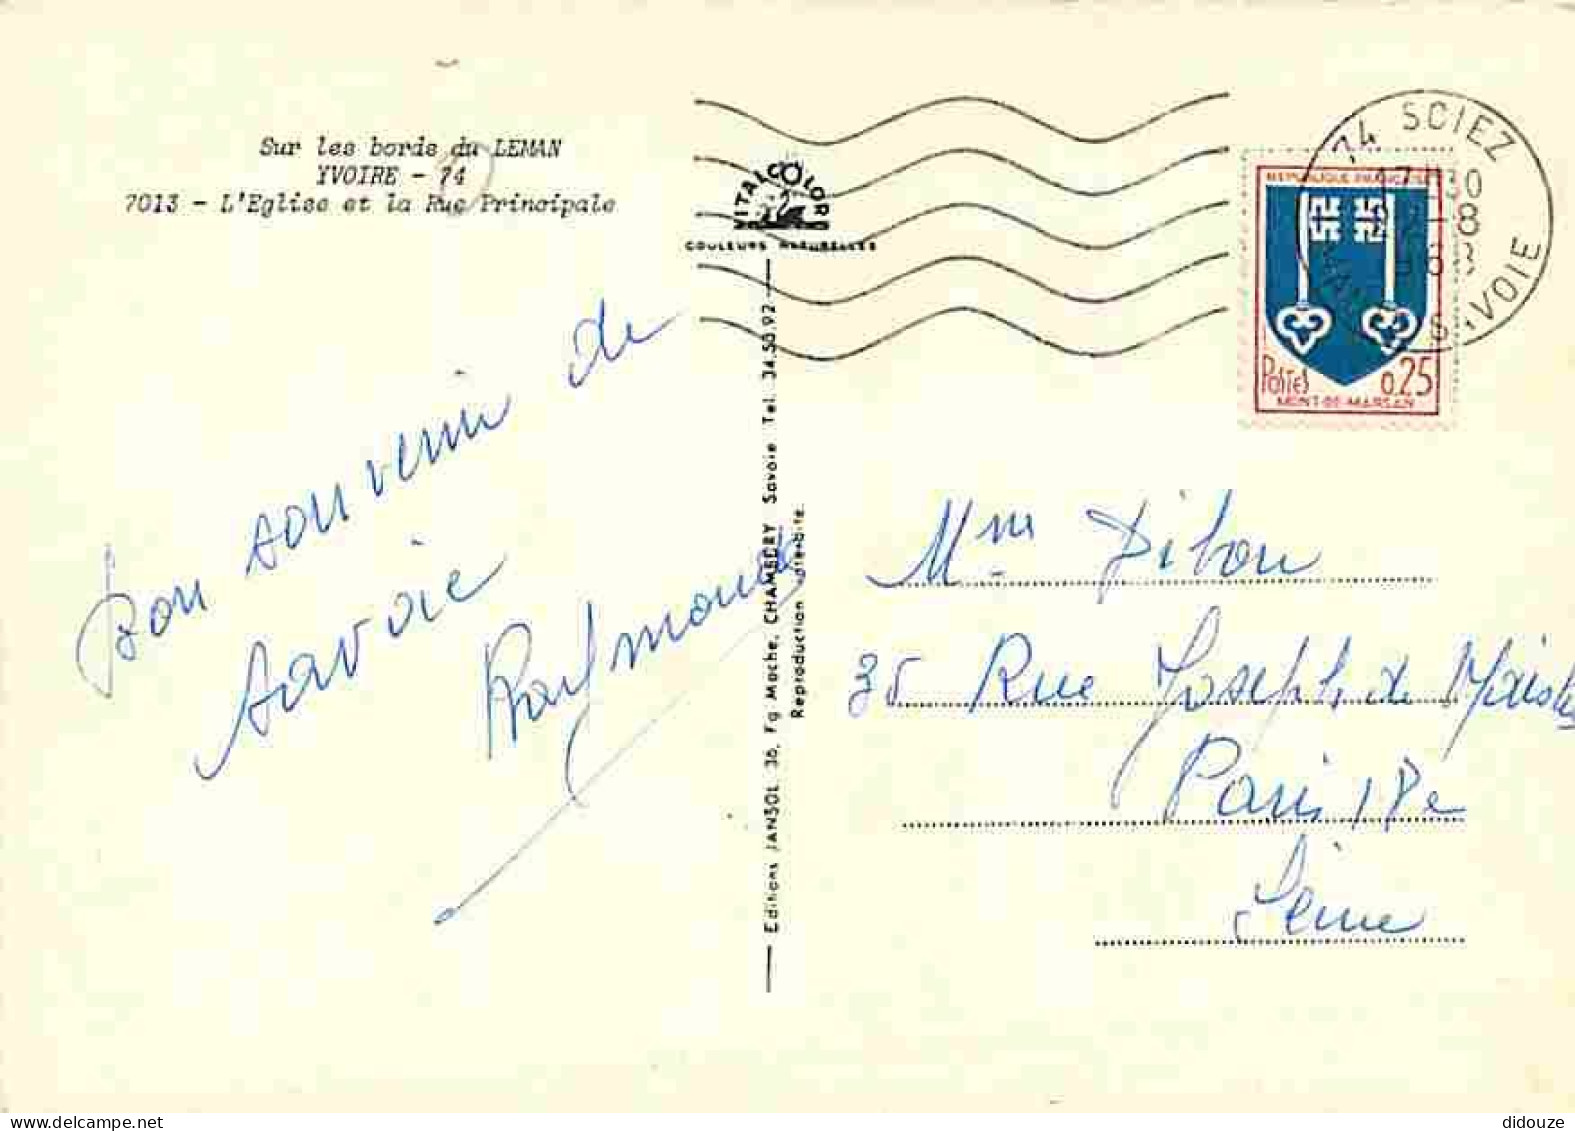 Sur les bords du LEMAN
YVOIRE - 74
7013 - L'Eglise et la Rue Principale
VITALCOLOR
COULEURS NATURELLES
74 SCIEZ
17H30
-8
SAVOIE
REPUBLIQUE FRANCAISE
POSTES 0.25
MONT-DE-MARSAN
Bon souvenir de
Savoie
Raymonde
Editions JANSOL 36, Fg Mache, CHAMBERY Savoie Tel. 34.50.92
Reproduction interdite.
Mme Dibou
35 Rue Joseph de Maistre
Paris 18e
Seine
didouze